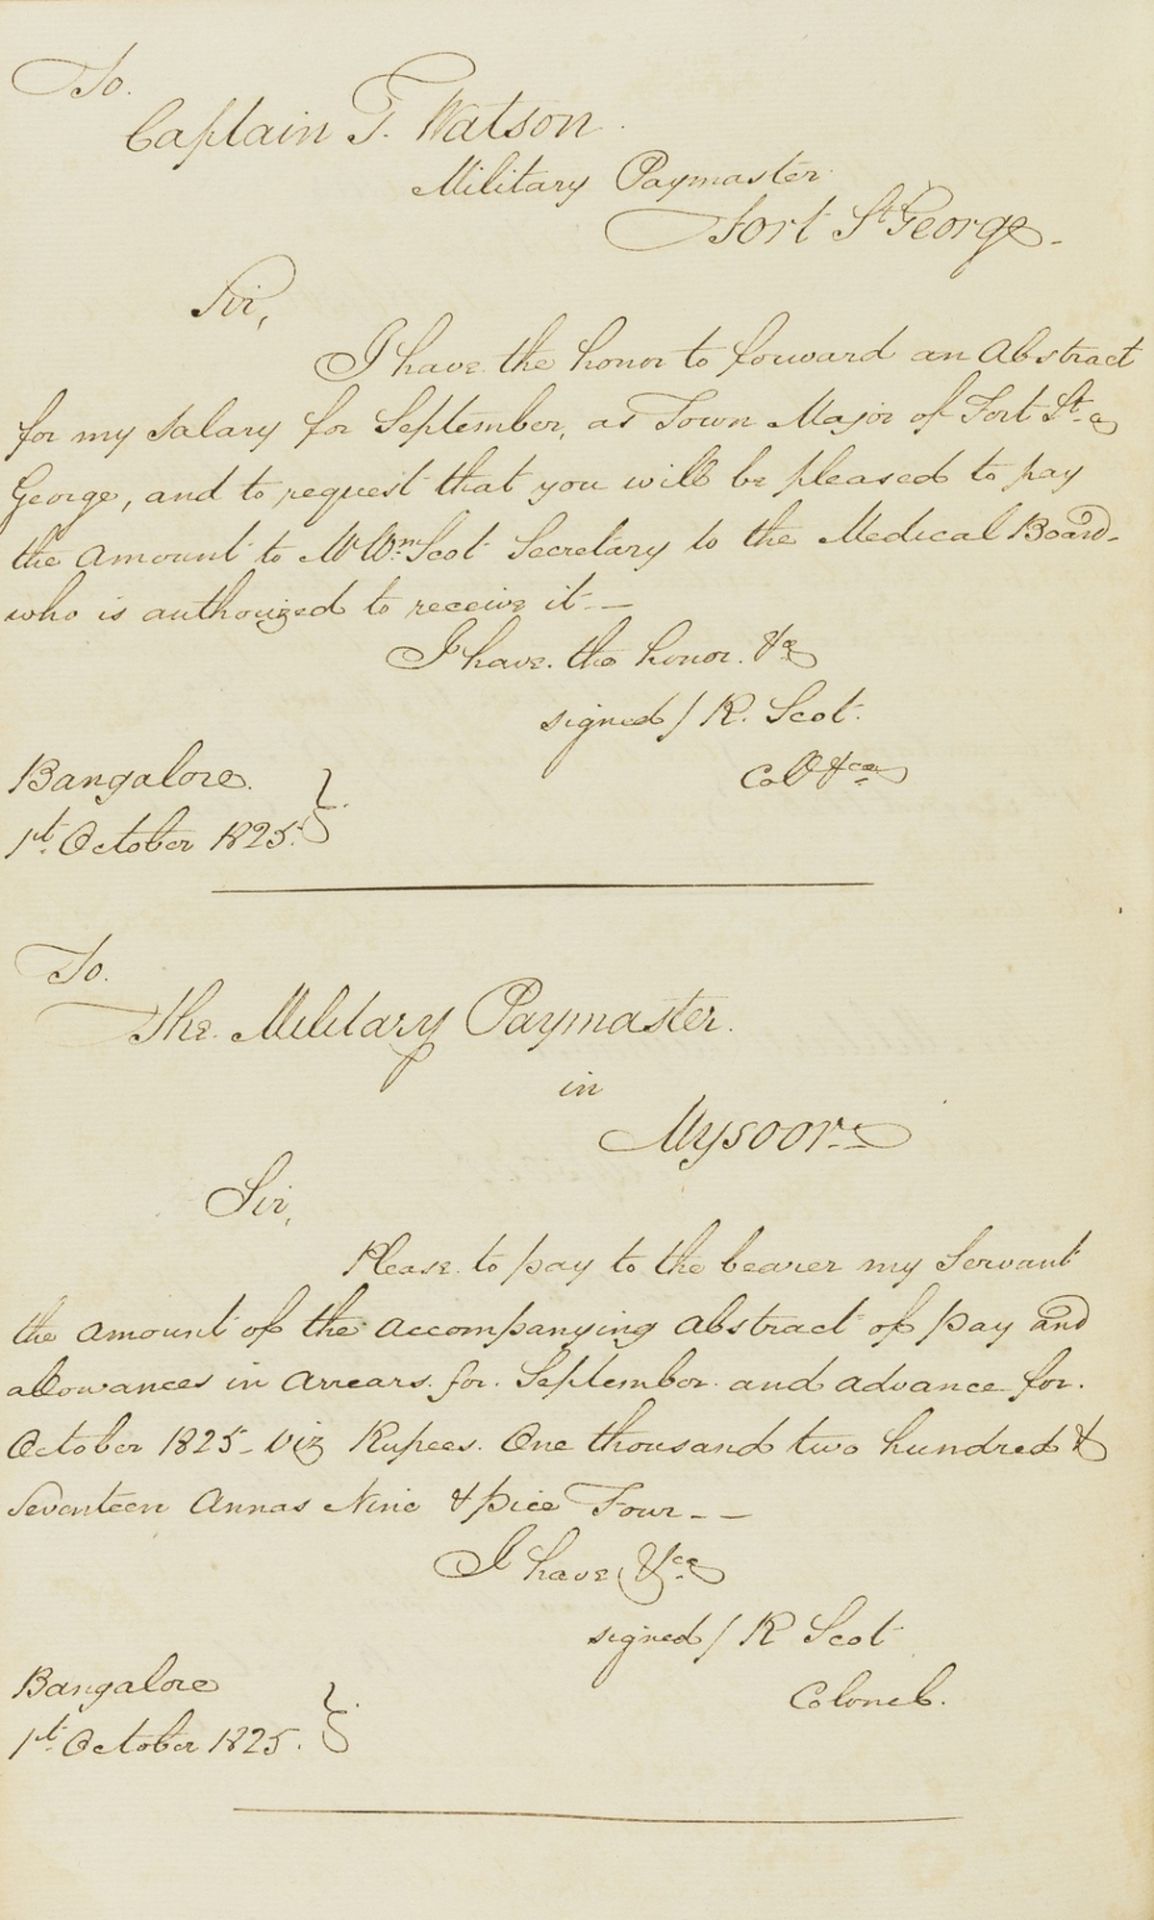 To.
Captain T. Watson.
Military Paymaster.
Fort St George.
Sir,
I have the honor to forward an Abstract
for my salary for September, as Town Major of Fort St.
George, and to request that you will be pleased to pay
the amount to Mr Wm Scot Secretary to the Medical Board.
who is authorized to receive it —
I have. the honor. &c
signed / R. Scot.
Col &ca
Bangalore.
1st October 1825.
To.
The Military Paymaster.
in
Mysoore
Sir,
Please to pay to the bearer my Servant
the amount of the accompanying abstract of pay and
allowances in Arrears for. September. and advance for.
October 1825 - Viz Rupees. One thousand two hundred &
Seventeen Annas Nine & pice Four — —
I have &ca
signed / R Scot
Colonel.
Bangalore
1st October 1825.